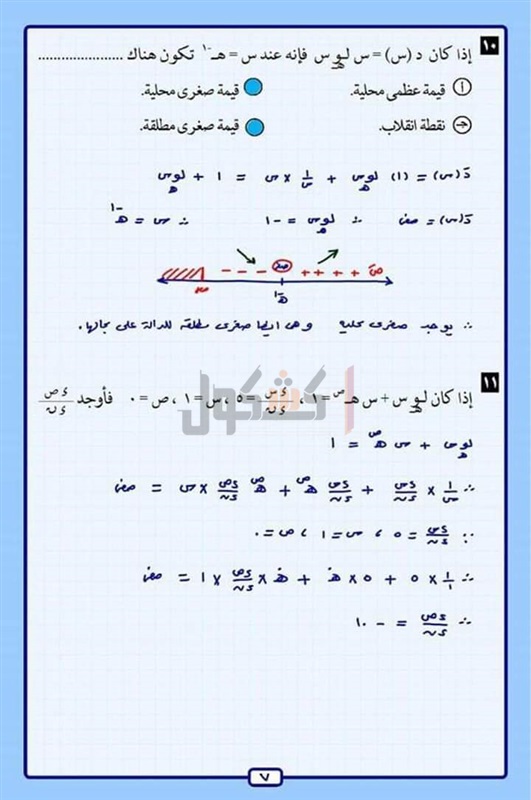 ١٠ إذا كان د (س) = س لـو_هـ س فإنه عند س = هـ^-١ تكون هناك .....................
أ قيمة عظمى محلية. قيمة صغرى محلية.
جـ نقطة انقلاب. قيمة صغرى مطلقة.
دَ(س) = (١) لو_هـ س + ١/س × س = ١ + لو_هـ س
دَ(س) = صفر ∴ لو_هـ س = -١ ∴ س = هـ^-١
صفر - - - صفر + + + + دَ
هـ^-١
∴ يوجد صغرى محلية وهى ايضا صغرى مطلقه للدالة على مجالها.
كشكول
١١ إذا كان لـو_هـ س + س هـ^ص = ١ ، ءس/ءن = ٥ ، س = ١ ، ص = ٠ فأوجد ءص/ءن
لو_هـ س + س هـ^ص = ١
∴ ١/س × ءس/ءن + ءس/ءن هـ^ص + هـ^ص ءص/ءن × س = صفر
∵ ءس/ءن = ٥ ، س = ١ ، ص = ٠
∴ ١/١ × ٥ + ٥ × هـ^٠ + هـ^٠ × ءص/ءن × ١ = صفر
∴ ءص/ءن = - ١٠
٧